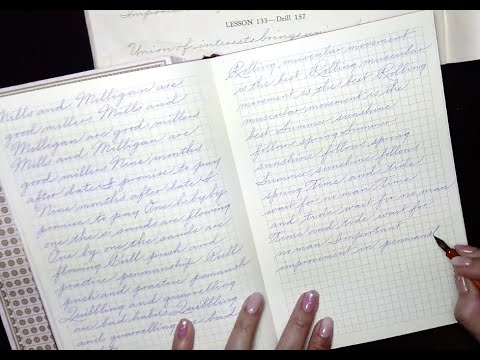 LESSON 133—Drill 157
Union of interests brings
Mills and Milligan are
good millers Mills and
Milligan are good millers
Mills and Milligan are
good millers Nine months
after date I promise to pay
Nine months after date I
promise to pay One by by
one the s sands are flowing
One by one the sands are
flowing Quill push and
practice penmanship Quill
push and practice penmansh
Quibbling and quarrelling
are bad habits Quibbling
and quarrelling are bad
Rolling muscular movement
is the best Rolling muscular
movement is the best Rolling
muscular movement is the
best Summer sunshine
follows spring Summer
sunshine follows spring
Summer sunshine follows
spring Time and tide
wait for no man Time
and tide wait for no man
Time and tide wait for
no man Important
improvement in penmansh